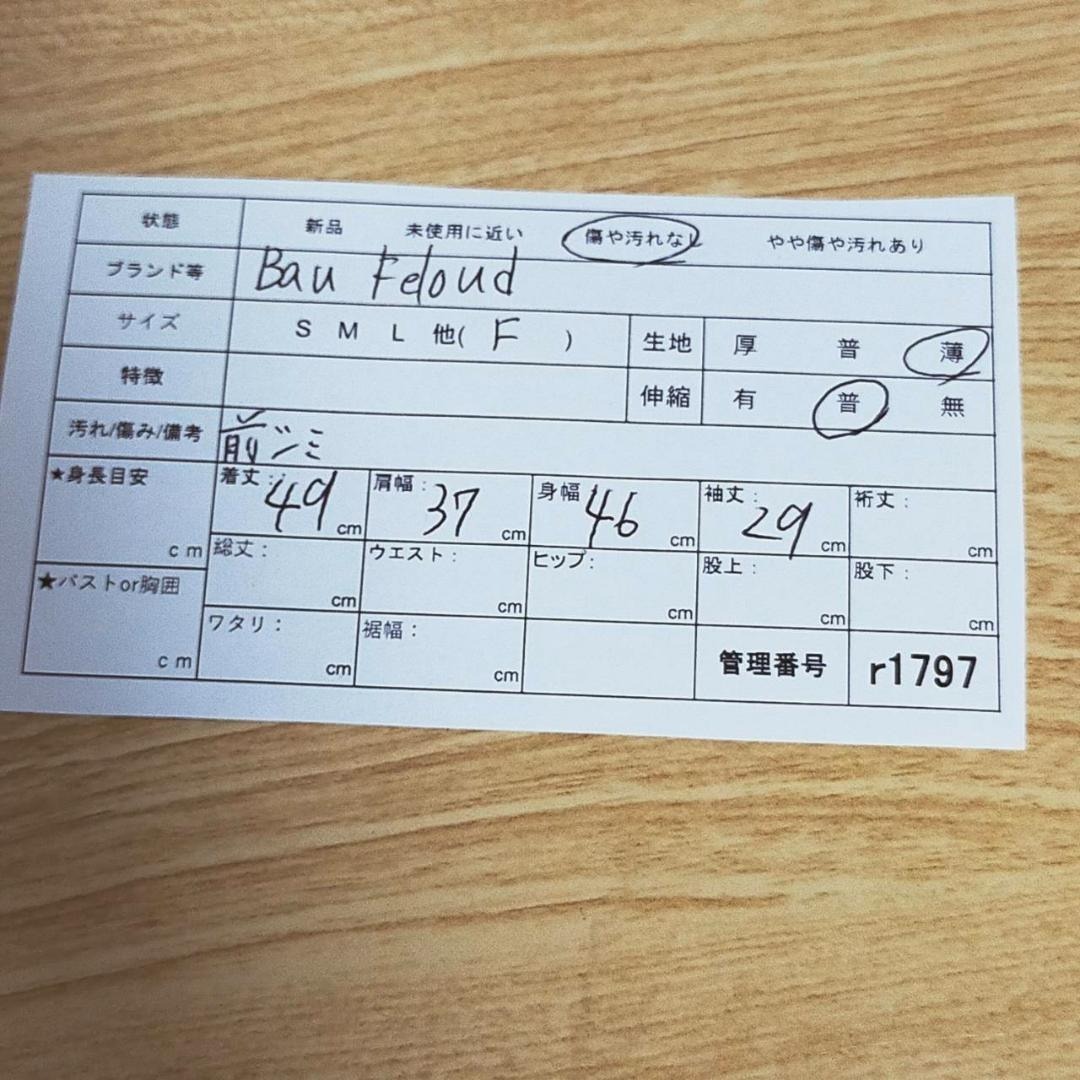 状態 新品 未使用に近い 傷や汚れなし やや傷や汚れあり
ブランド等 Bau Feloud
サイズ S M L 他( F ) 生地 厚 普 薄
特徴 伸縮 有 普 無
汚れ/傷み/備考 前シミ
★身長目安 cm 着丈: 49 cm 肩幅: 37 cm 身幅 46 cm 袖丈: 29 cm 裄丈: cm
総丈: cm ウエスト: cm ヒップ: cm 股上: cm 股下: cm
★バストor胸囲 cm ワタリ: cm 裾幅: cm 管理番号 r1797